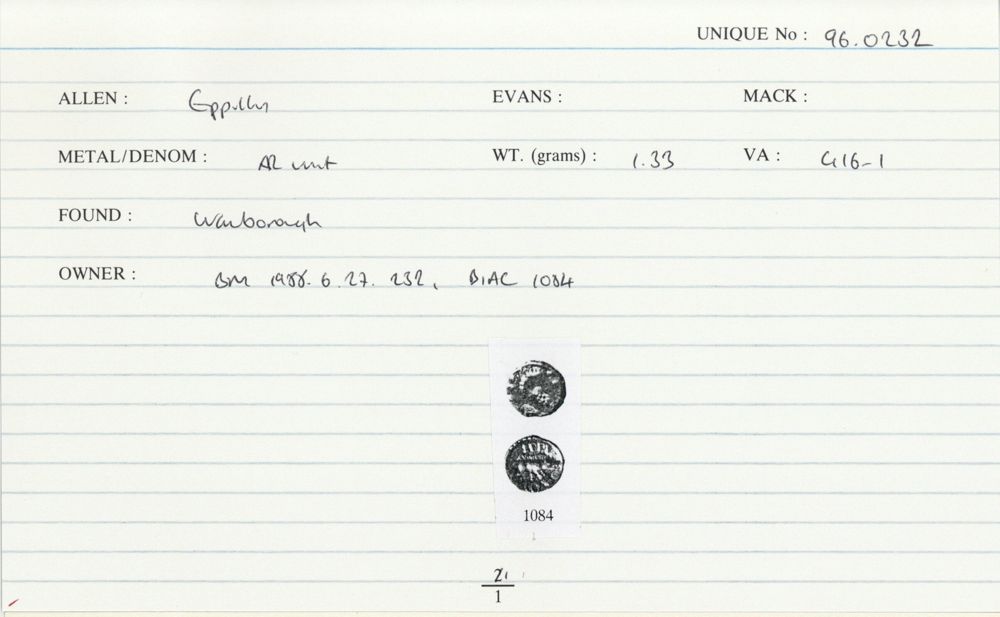 UNIQUE No : 96.0232
ALLEN : Eppillus EVANS : MACK :
METAL/DENOM : AR unit WT. (grams) : 1.33 VA : 416-1
FOUND : Wanborough
OWNER : BM 1988. 6. 27. 232, BIAC 1084
1084
2
1